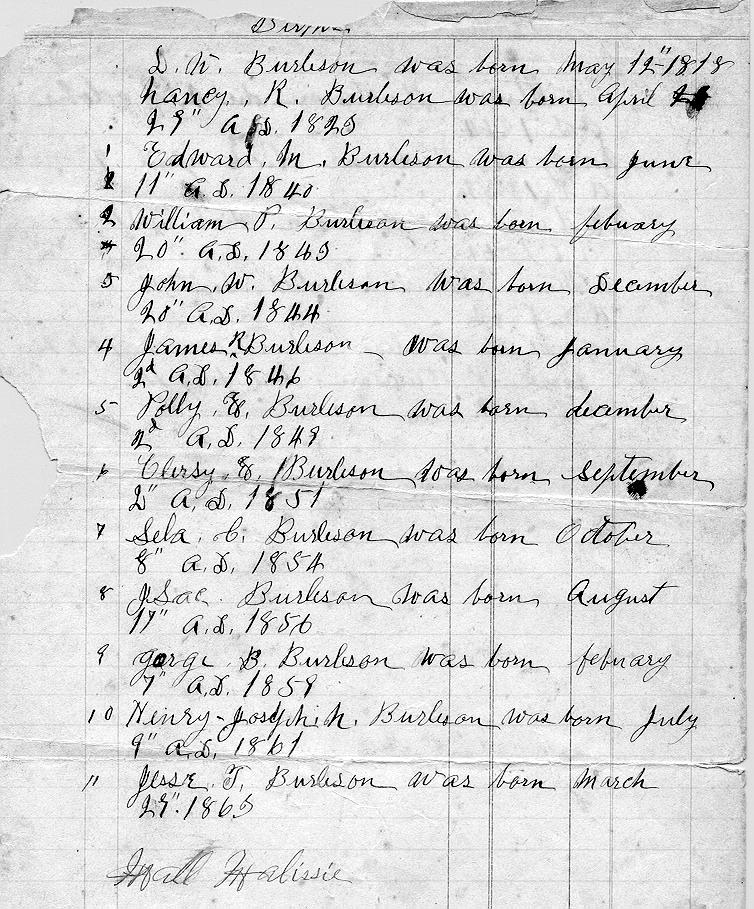 Births
D. W. Burleson was born May 12" 1818
Nancy. R. Burleson was born April
29" A.D. 1825
1 Edward. M. Burleson was born June
11" A.D. 1840
2 William P. Burleson was born febuary
20". A.D. 1843
3 John. W. Burleson was born December
20" A.D. 1844
4 James R Burleson was born January
2d A.D. 1846
5 Polly. Burleson was born december
2d A.D. 1849
6 Burleson was born september
2" A.D. 1851
7 Sela. C. Burleson was born October
8" A.D. 1854
8 JSac. Burleson was born August
17" A.D. 1856
9 gorge. B. Burleson was born febuary
7" A.D. 1859
10 Henry-Joseph. N. Burleson was born July
9" A.D. 1861
11 Jesse. T. Burleson was born March
29". 1865
Hall Halissie